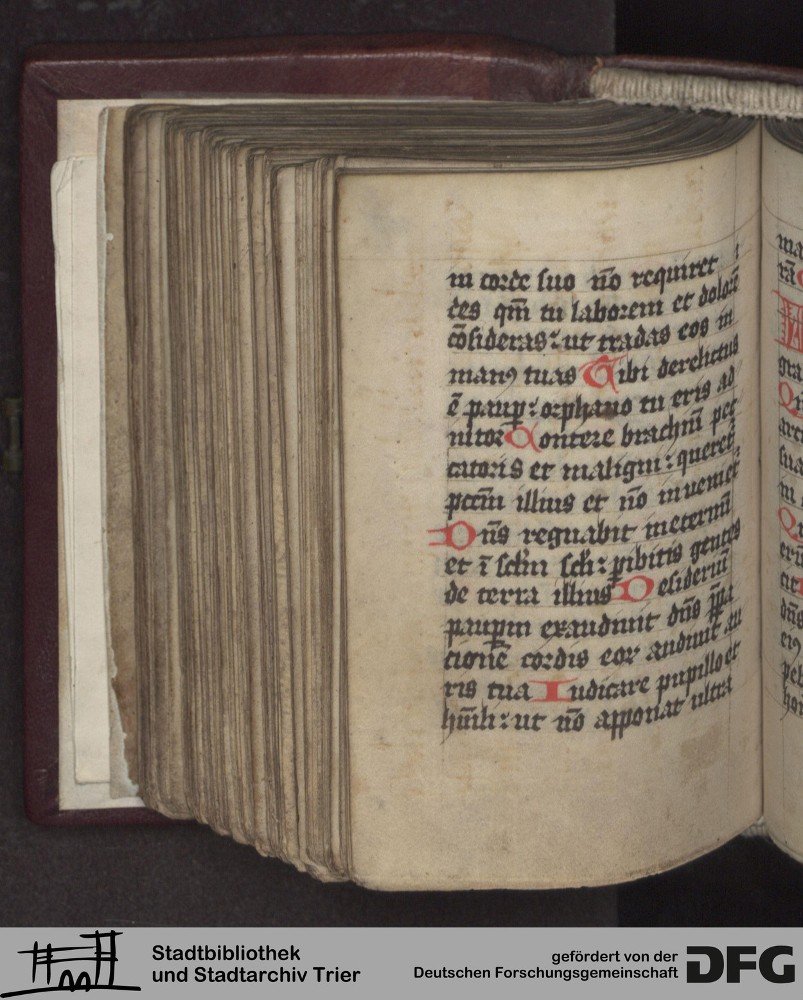 in corde suo nō requiret :
des qm̄ tu laborem et dolorē
cōsideras : ut tradas eos in
manꝰ tuas Tibi derelictus
ē paup̄ : orphano tu eris ad
iutor Contere brachiū pec
catoris et maligni : queret̄
pctm̄ illius et nō inueniet̄
Dn̄s regnabit ineternū
et ī sclm̄ scli : pibitis gentes
de terra illius Desideriū
paupm̄ exaudiuit dn̄s p̄pa
tionē cordis eor audiuit au
ris tua Iudicare pupillo et
hūili : ut nō apponat ultra
ma
rā
gra
Qn̄
arcu
sua
in
Qn̄
erū
cit
dn̄s
eiꝰ
pec
hon
Stadtbibliothek
und Stadtarchiv Trier
gefördert von der
Deutschen Forschungsgemeinschaft
DFG